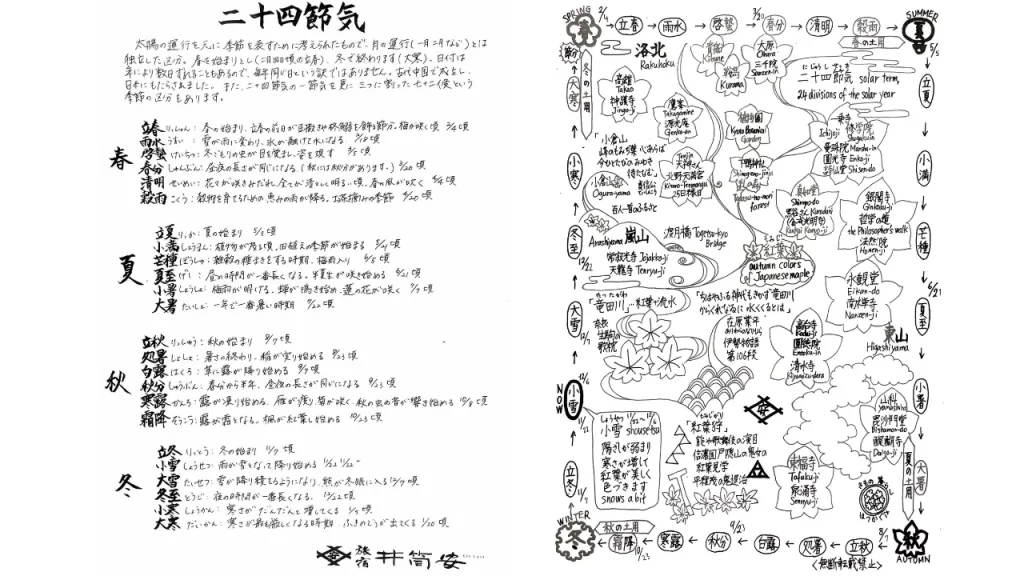 二十四節気
太陽の運行を元に季節を表すために考えられたもので、月の運行(一月二月など)とは
独立した区分。春を始まりとし(二月四日頃の立春)、冬で終わります(大寒)。日付は
年により数日ずれることもあるので、毎年同じ日という訳ではありません。古代中国で成立し、
日本にもたらされました。また、二十四節気の一節気を更に三つに割った七十二候という
季節の区分もあります。
春
立春 りっしゅん: 春の始まり、立春の前日が豆撒きや柊鰯を飾る節分。梅が咲く 2/4頃
雨水 うすい: 雪が雨に変わり、氷が融けて水になる 2/19頃
啓蟄 けいちつ: 冬ごもりの虫が目を覚まし、姿を現す 3/5頃
春分 しゅんぶん: 昼夜の長さが同じになる。(秋には秋分があります。) 3/20頃
清明 せいめい: 花々が咲きみだれ、全てが清々しく明るい頃、春の風が吹く 4/5頃
穀雨 こくう: 穀物を育てるための恵みの雨が降る。 4/20頃
夏
立夏 りっか: 夏の始まり 5/5頃
小満 しょうまん: 植物が茂る頃、田植えの季節が始まる 5/21頃
芒種 ぼうしゅ: 雑穀の種まきをする時期、梅雨入り 6/5頃
夏至 げし: 昼の時間が一番長くなる。半夏生が咲き始める 6/21頃
小暑 しょうしょ: 梅雨が明ける。蝉が鳴き始め、蓮の花が咲く 7/7頃
大暑 たいしょ: 一年で一番暑い時期 7/22頃
秋
立秋 りっしゅう: 秋の始まり 8/7頃
処暑 しょしょ: 暑さの終わり、稲が実り始める 8/23頃
白露 はくろ: 草に露が降り始める 9/7頃
秋分 しゅうぶん: 春分から半年、昼夜の長さが同じになる 9/23頃
寒露 かんろ: 露が凍り始める。雁が渡り、菊が咲く。秋の虫の音が響き始める 10/8頃
霜降 そうこう: 露が霜となる。楓が紅葉し始める 10/23頃
冬
立冬 りっとう: 冬の始まり 11/7頃
小雪 しょうせつ: 雨が雪となって降り始める 11/22
大雪 たいせつ: 雪が降り積もるようになり、熊が冬眠に入る 12/7頃
冬至 とうじ: 夜の時間が一番長くなる。 12/22頃
小寒 しょうかん: 寒さがだんだんと増してくる 1/5頃
大寒 だいかん: 寒さが最も厳しくなる時期、ふきのとうが出てくる 1/20頃
旅宿 井筒安
SPRING
春
2/4
立春
雨水
啓蟄
3/20
春分
清明
穀雨
SUMMER
夏
5/5
春の土用
節分
冬の土用
大寒
小寒
冬至
12/22
大雪
NOW
小雪
11/22
立冬
11/7
WINTER
冬
秋の土用
霜降
10/23
寒露
秋分
9/23
白露
処暑
立秋
8/7
秋
AUTUMN
立夏
小満
芒種
6/21
夏至
小暑
大暑
夏の土用
洛北
Rakuhoku
貴船
Kibune
鞍馬
Kurama
大原
Ohara
三千院
Sanzen-in
にじゅうしせっき
二十四節気 solar term,
24 divisions of the solar year
高雄
Takao
神護寺
Jingo-ji
鷹峯
Takagamine
源光庵
Genko-an
植物園
Kyoto Botanical
Garden
一乗寺
Ichijoji
修学院
曼殊院 Manshu-in
圓光寺 Enko-ji
詩仙堂 Shisen-do
「小倉山
峰のもみぢ葉 心あらば
今ひとたびの みゆき
待たなむ」
貞信公
小倉山
Ogura-yama
百人一首のふるさと
Tenjin
天神さん
北野天満宮
Kitano-Tenmangu
25日縁日
下鴨神社
Shimogamo-Jinja
糺の森
Tadasu-no-mori
forest
真如堂
Shinnyo-do
黒谷さん Kurodani
(金戒光明寺)
Konkai Komyo-ji
銀閣寺
Ginkaku-ji
哲学の道
the Philosopher's walk
法然院
Honen-in
Arashiyama 嵐山
常寂光寺 Jojakko-ji
天龍寺 Tenryu-ji
渡月橋 Togetsu-kyo
Bridge
もみじ
紅葉
autumn colors
of Japanese maple
永観堂
Eikan-do
南禅寺
Nanzen-ji
たつたがわ
「竜田川」…紅葉の流水
奈良
生駒の
歌枕
「ちはやぶる 神代もきかず 竜田川
からくれなゐに 水くくるとは」
在原業平
ありわらのなりひら
伊勢物語
第106段
高台寺
Kodai-ji
圓徳院
Entoku-in
清水寺
Kiyomizu-dera
東山
Higashiyama
しょうせつ 11/22~12/6
小雪 shousetsu
陽ざしが弱まり
寒さが増して
紅葉が美しく
色づきます
snows a bit
もみじがり
「紅葉狩」
能や歌舞伎の演目
信濃国戸隠山の鬼女の
紅葉見学
平維茂の鬼退治
山科
Yamashina
毘沙門堂
Bishamon-do
醍醐寺
Daigo-ji
東福寺
Tofuku-ji
泉涌寺
Sennyu-ji
<無断転載禁止>